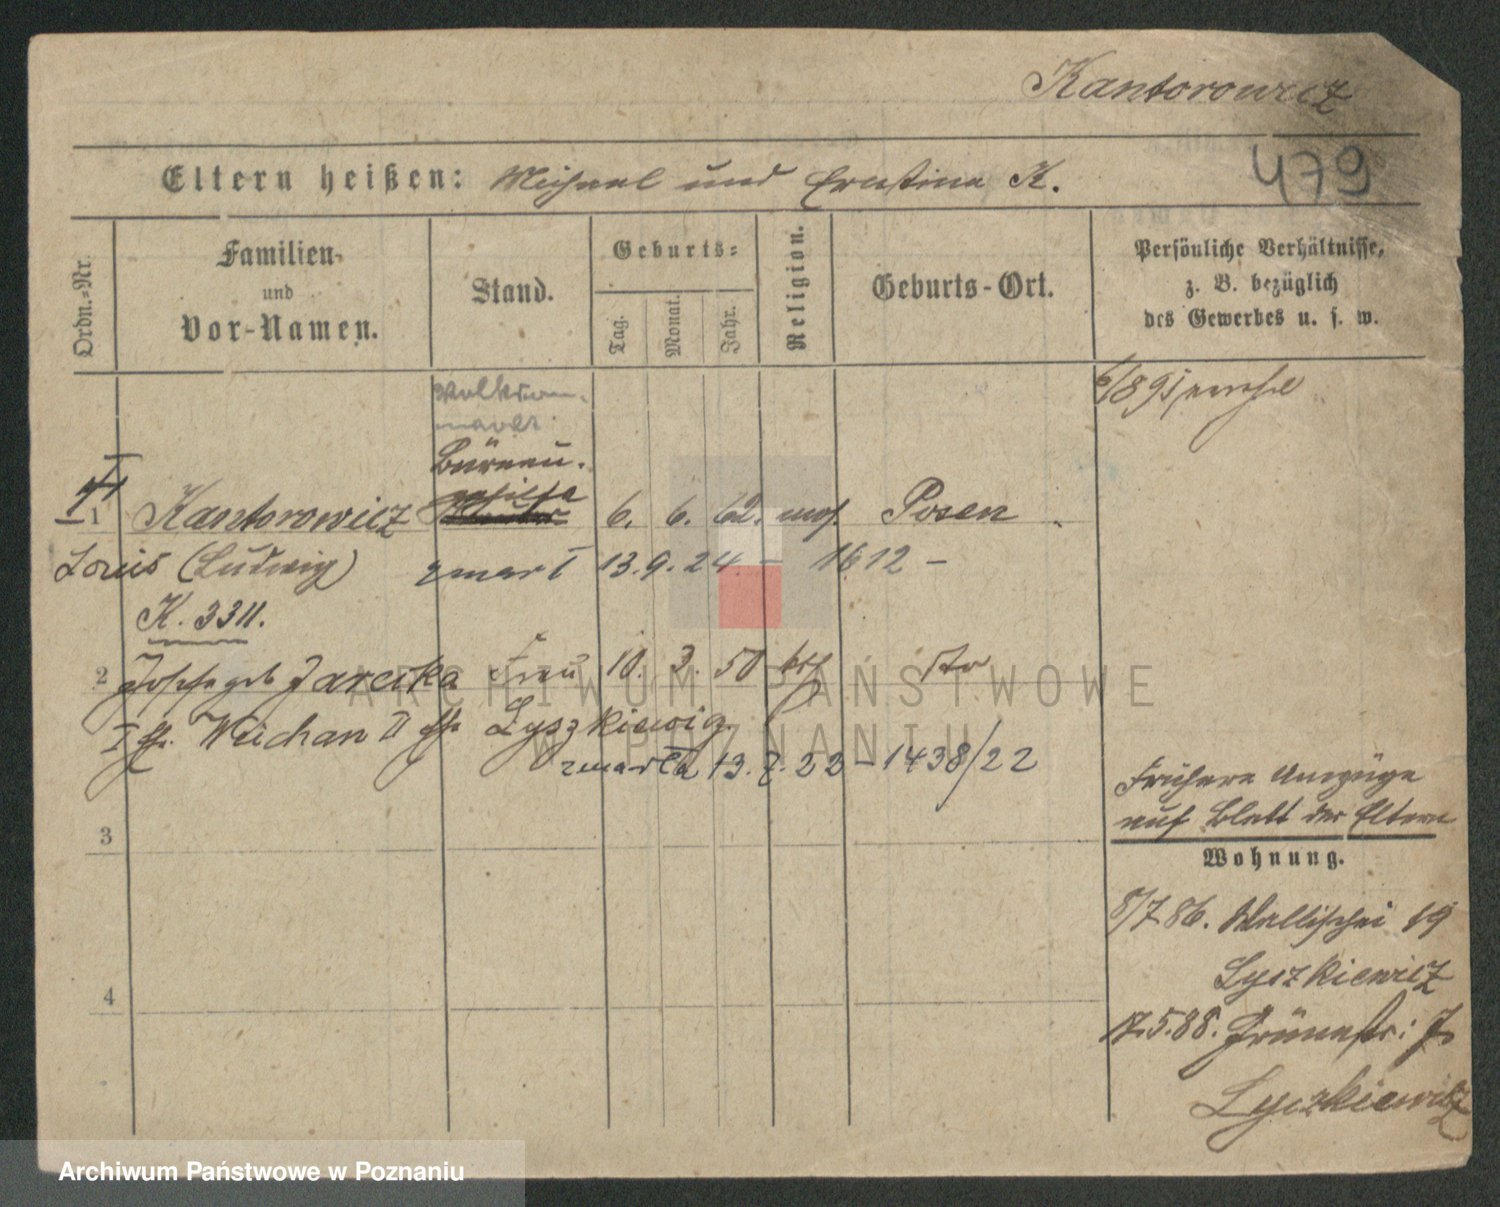 Kantorowicz
479
Eltern heißen: Michael und Ernstine K.
Ordn.-Nr.
Familien-
und
Vor-Namen.
Stand.
Geburts-
Tag.
Monat.
Jahr.
Religion.
Geburts-Ort.
Persönliche Verhältnisse,
z. B. bezüglich
des Gewerbes u. s. w.
6/89
Büreau-
1 Kantorowicz 6. 6. 62. mos. Posen
Louis (Ludwig) zmarł 13.9.24. – 1612 –
K. 3311.
2 Josefa geb Jarecka Frau 10. 3. 50 kth dto
I fr. Wuchan II fr. Lyszkiewicz
zmarła 13.7.22 – 1438/22
3
Frühere Umzüge
auf Blatt der Eltern
Wohnung.
8/7 86. Wallischei 19
Lyszkiewicz
4
17.5.88. Grünestr: 7.
Lyszkiewicz
ARCHIWUM PAŃSTWOWE
W POZNANIU
Archiwum Państwowe w Poznaniu